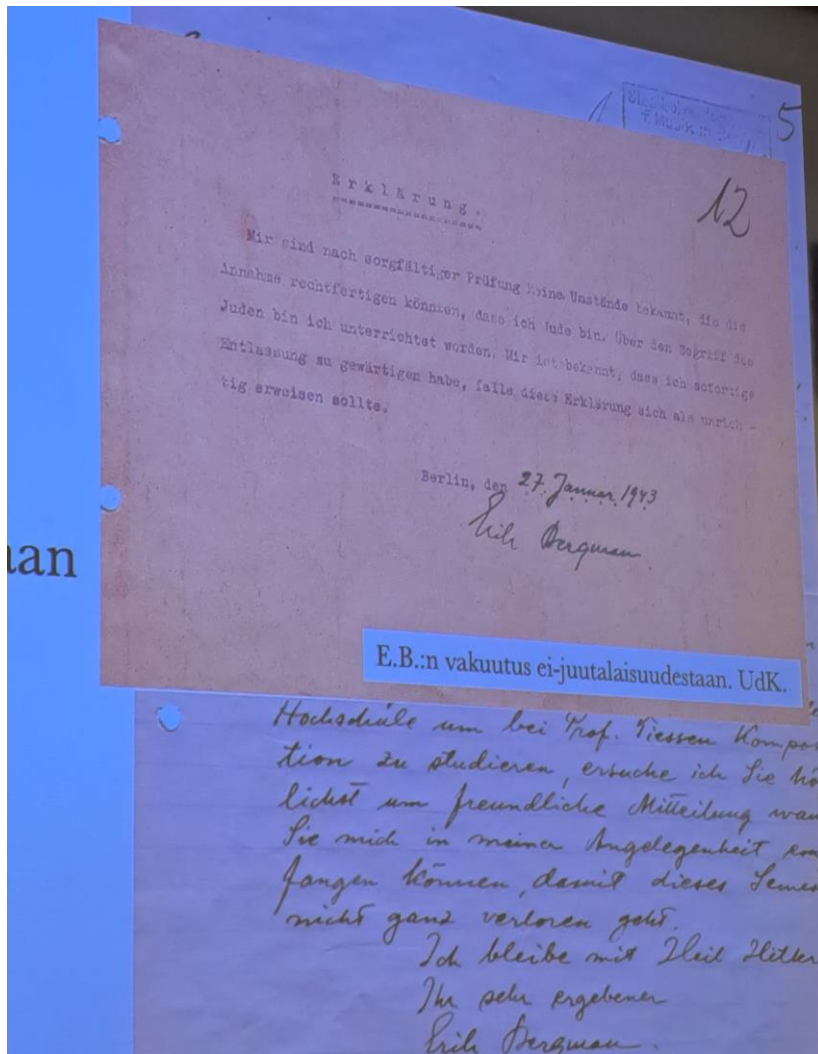 5
12
Erklärung.
Mir sind nach sorgfältiger Prüfung keine Umstände bekannt, die die
Annahme rechtfertigen könnten, dass ich Jude bin. Über den Begriff des
Juden bin ich unterrichtet worden. Mir ist bekannt, dass ich sofortige
Entlassung zu gewärtigen habe, falls diese Erklärung sich als unrich -
tig erweisen sollte.
Berlin, den 27. Januar 1943
Erik Bergman
aan
E.B.:n vakuutus ei-juutalaisuudestaan. UdK.
Hochschule um bei Prof. Tiessen Kompo
tion zu studieren, ersuche ich Sie hö
lichst um freundliche Mitteilung wa
Sie mich in meiner Angelegenheit em
fangen können, damit dieses Semes
nicht ganz verloren geht.
Ich bleibe mit Heil Hitler
Ihr sehr ergebener
Erik Bergman.